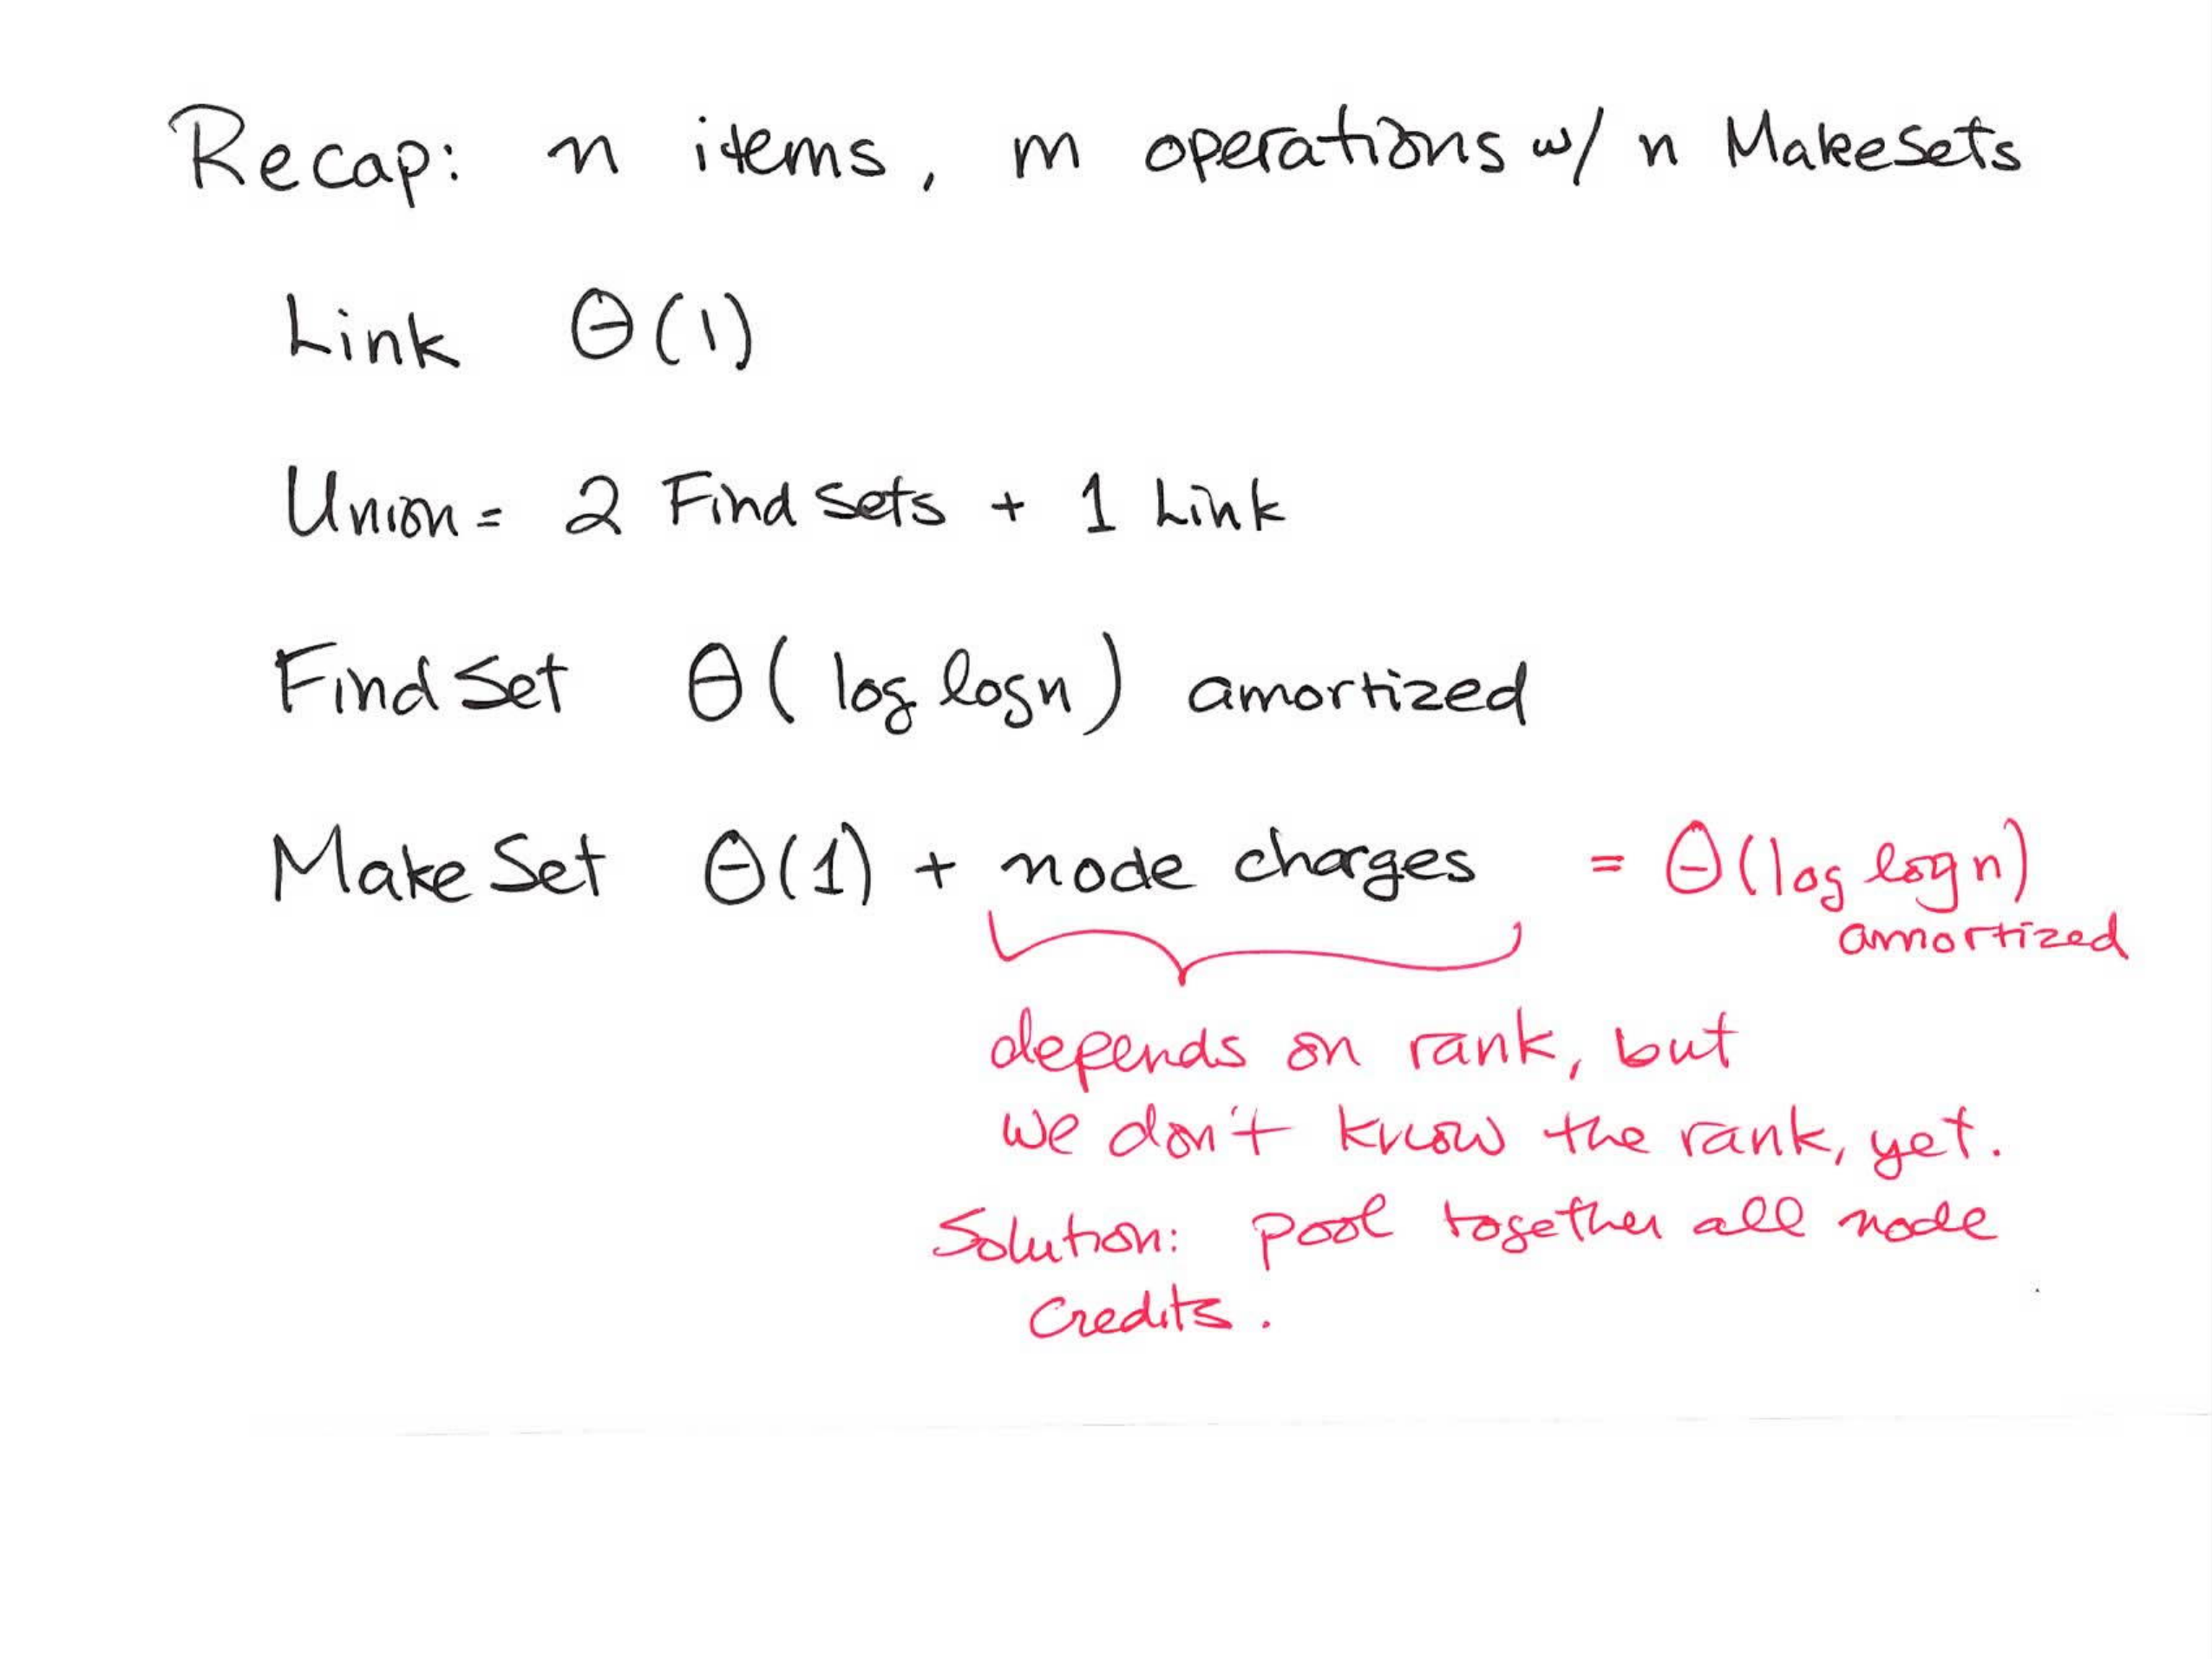 Recap: n items, m operations w/ n Makesets
Link Θ(1)
Union = 2 Find Sets + 1 Link
Find Set Θ( log log n ) amortized
Make Set Θ(1) + node charges = Θ(log log n)
amortized
depends on rank, but
we don't know the rank, yet.
Solution: pool together all node
credits.